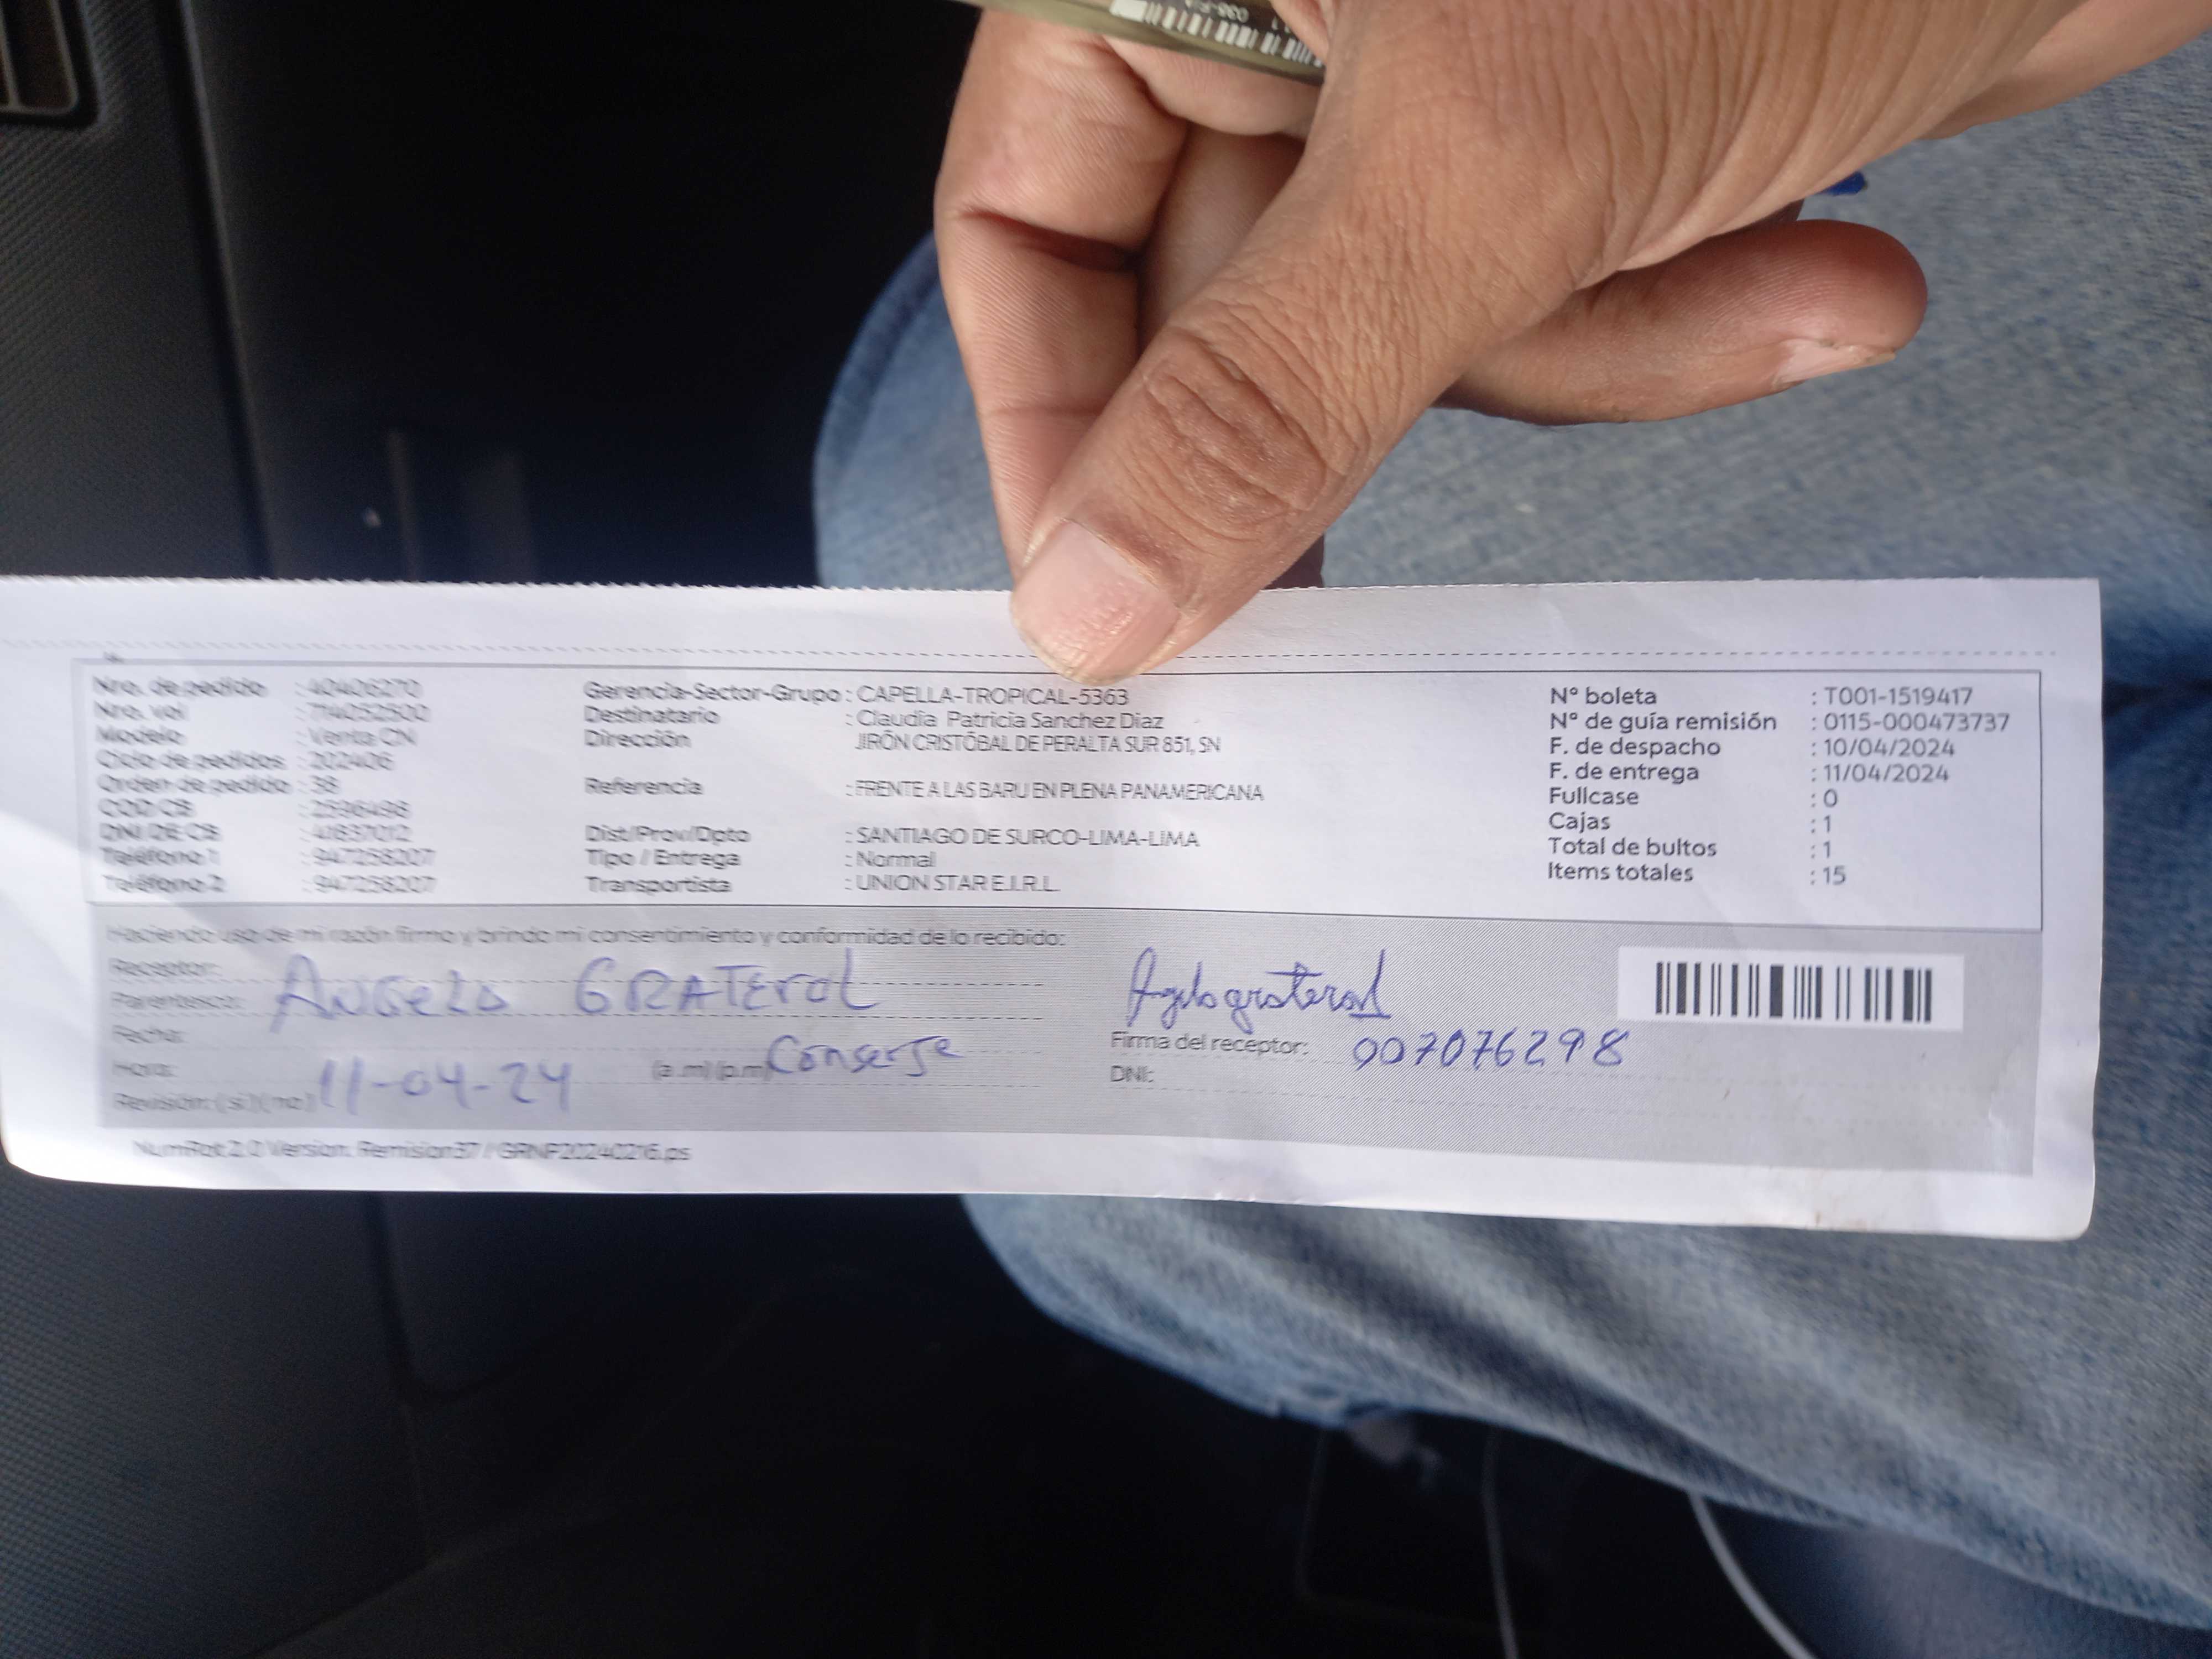 Nro. de pedido : 40406270
Nro. vol : 714052500
Modelo : Venta CN
Ciclo de pedidos : 202406
Orden de pedido : 38
COD CB : 2596498
DNI DE CB : 41837012
Teléfono 1 : 947258207
Teléfono 2 : 947258207
Gerencia-Sector-Grupo : CAPELLA-TROPICAL-5363
Destinatario : Claudia Patricia Sanchez Diaz
Dirección JIRÓN CRISTÓBAL DE PERALTA SUR 851, SN
Referencia : FRENTE A LAS BARU EN PLENA PANAMERICANA
Dist/Prov/Dpto : SANTIAGO DE SURCO-LIMA-LIMA
Tipo / Entrega : Normal
Transportista : UNION STAR E.I.R.L.
N° boleta : T001-1519417
N° de guía remisión : 0115-000473737
F. de despacho : 10/04/2024
F. de entrega : 11/04/2024
Fullcase : 0
Cajas : 1
Total de bultos : 1
Items totales : 15
Haciendo uso de mi razón firmo y brindo mi consentimiento y conformidad de lo recibido:
Receptor:
Parentesco: ANGELO GRATEROL
Fecha:
Hora: (a.m) (p.m) Conserje
Revisión: (si) (no) 11-04-24
Angelo graterol
Firma del receptor: 007076298
DNI:
NumRot 2.0 Version: Remision37 / GRNP20240216.ps